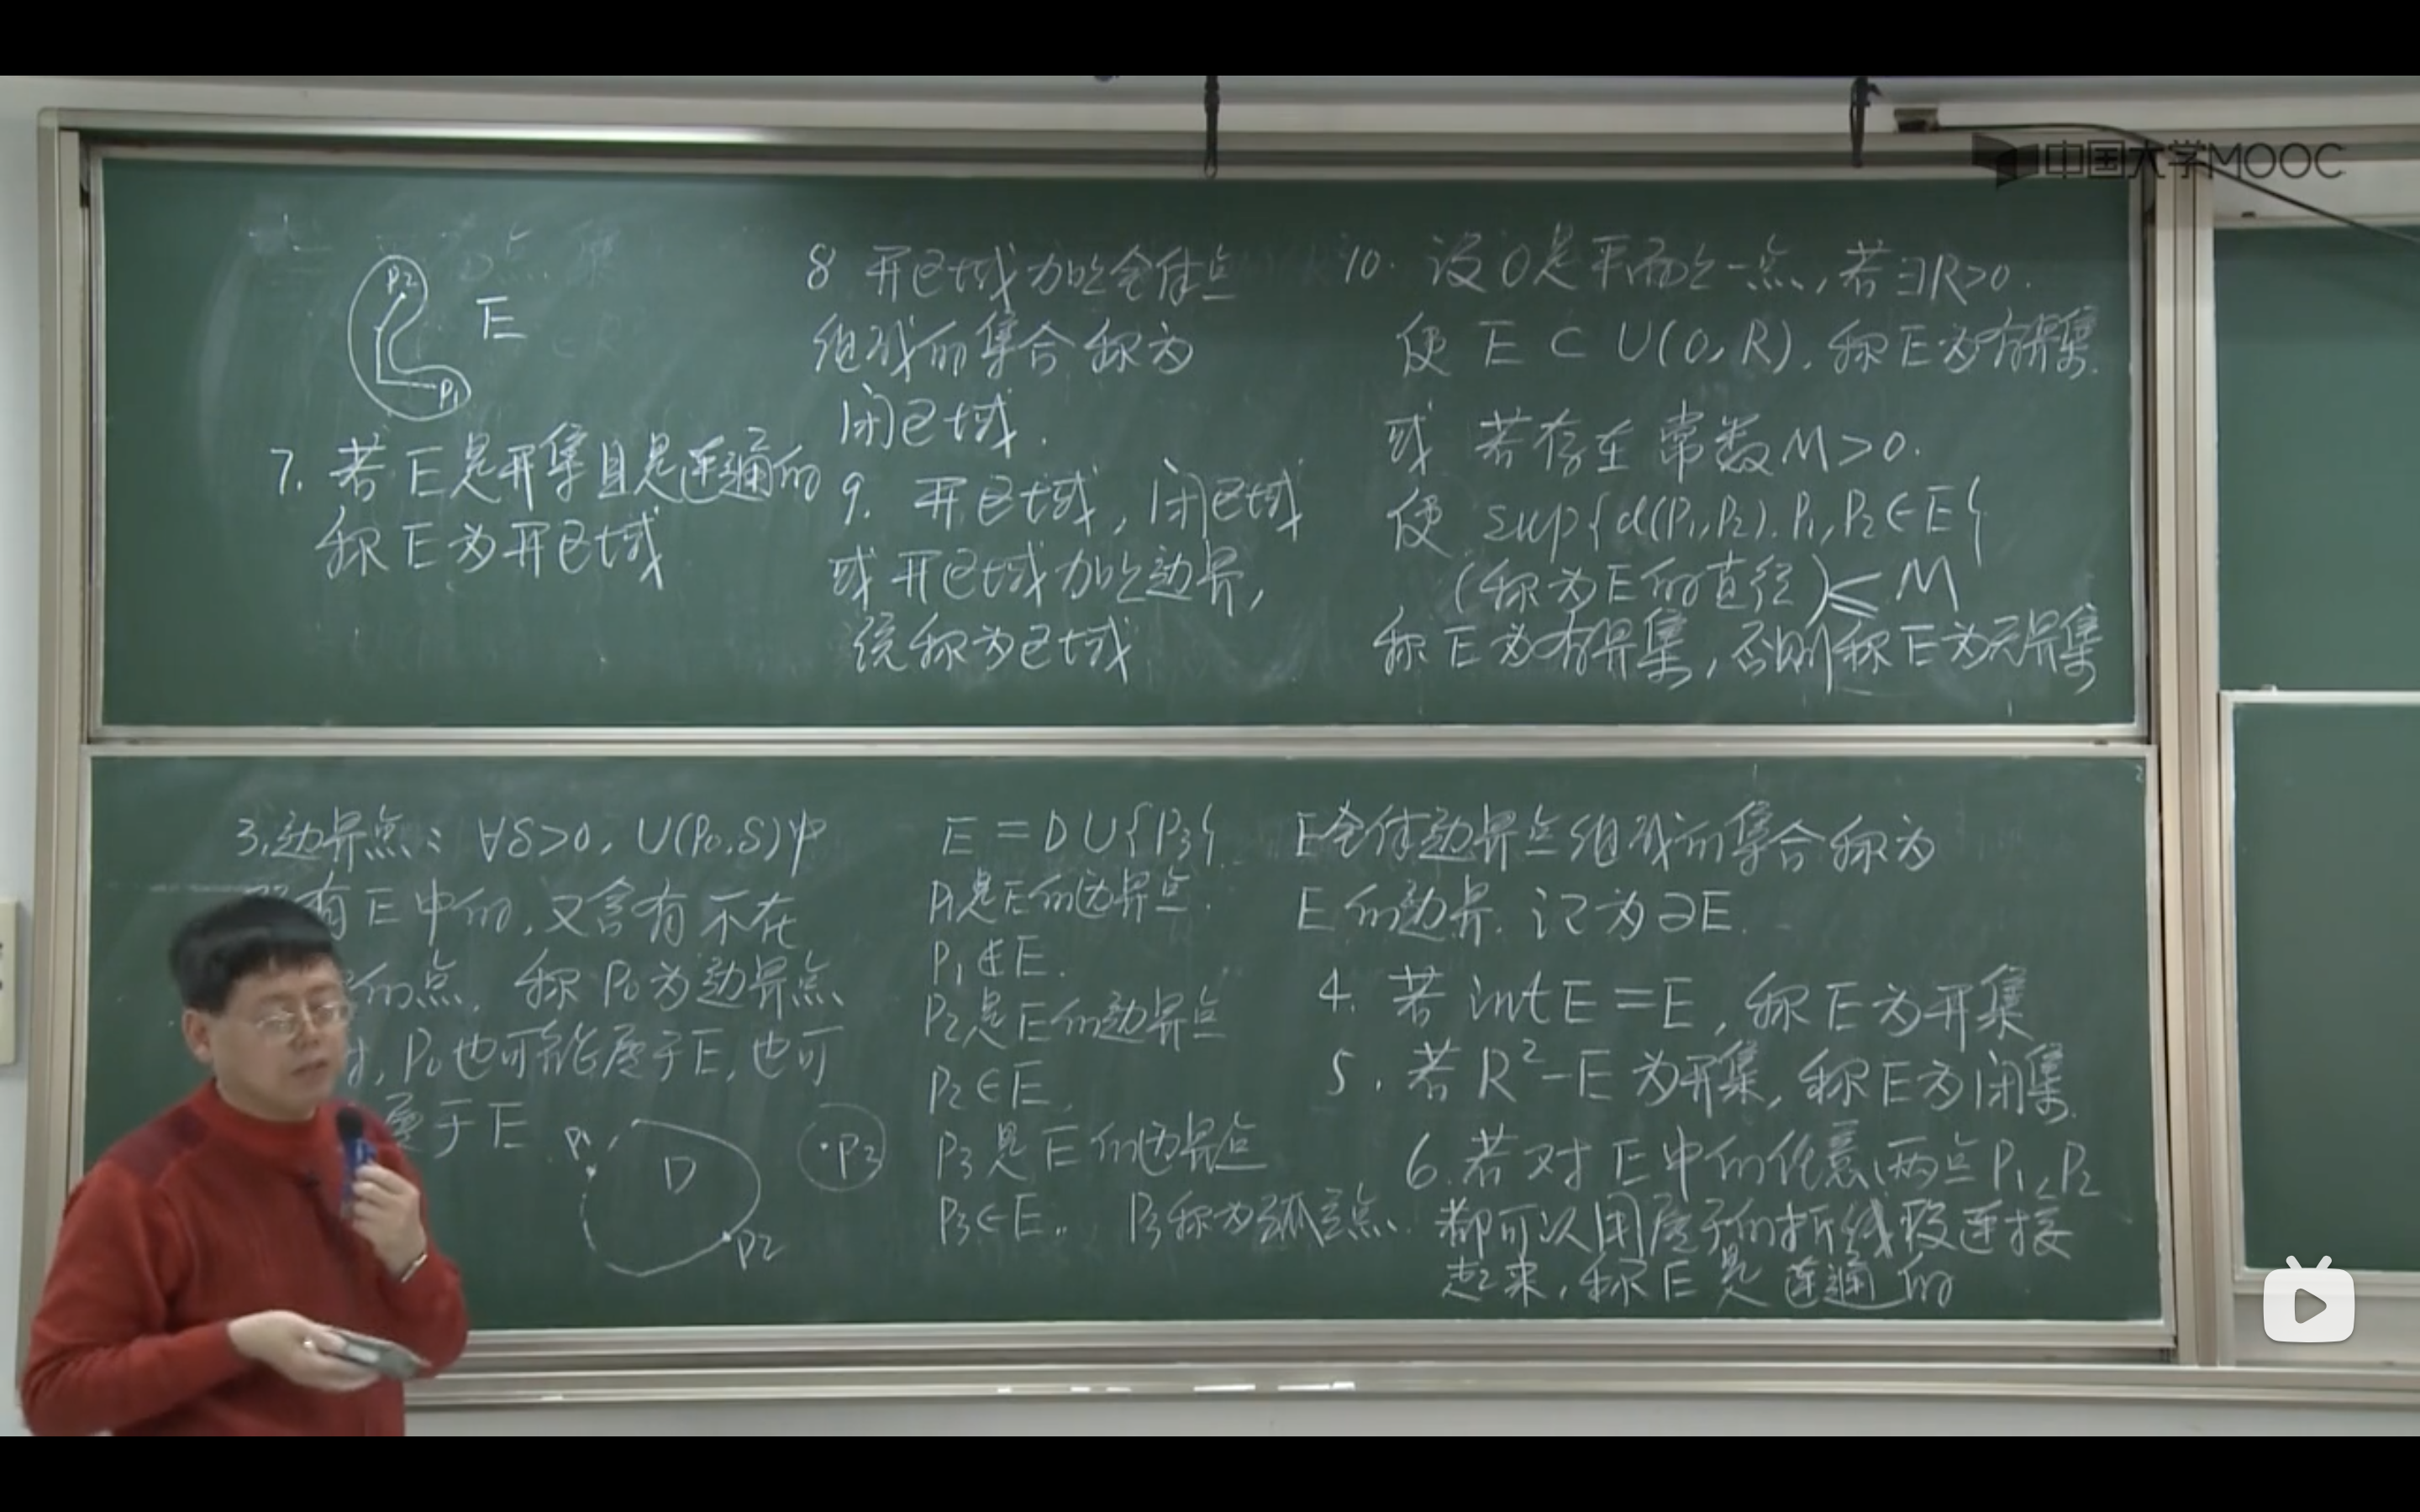 中国大学MOOC
P2
E
P1
7. 若E是开集且是连通的
称E为开区域
8 开区域加上全体
组成的集合称为
闭区域.
9. 开区域, 闭区域
或开区域加上边界,
统称为区域
10. 设O是平面上一点, 若∃R>0.
使 E ⊂ U(O, R), 称E为有界集.
或 若存在常数M>0.
使 sup{d(P1,P2). P1,P2∈E}
(称为E的直径)≤M
称E为有界集, 否则称E为无界集
3.边界点: ∀δ>0, U(P0,δ)中
有E中的, 又含有不在
的点, 称P0为边界点
, P0也可能属于E, 也可
属于E.
P1
D
P2
P3
E = D∪{P3}.
P1是E的边界点.
P1∉E.
P2是E的边界点
P2∈E.
P3是E的边界点
P3∈E. P3称为孤立点.
E全体边界点组成的集合称为
E的边界. 记为∂E.
4. 若 int E = E, 称E为开集
5. 若 R²-E 为开集, 称E为闭集.
6. 若对E中的任意两点P1,P2
都可以用属于的折线段连接
起来, 称E是连通的